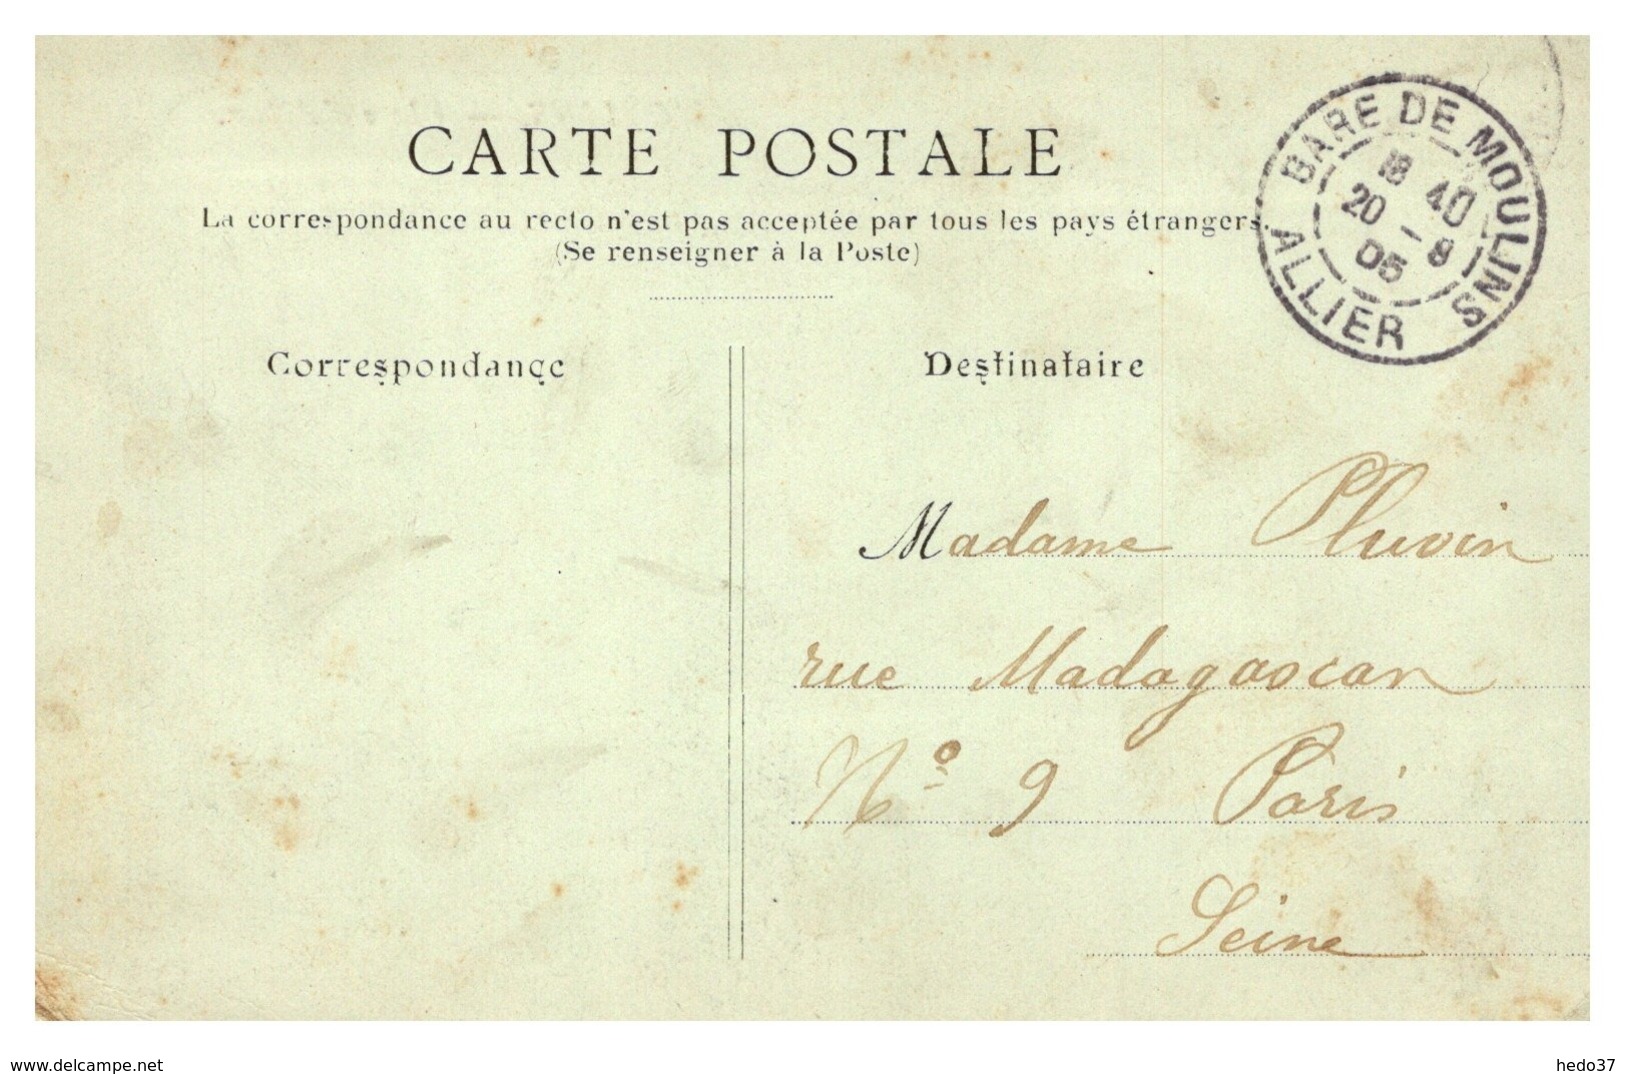 CARTE POSTALE
La correspondance au recto n'est pas acceptée par tous les pays étrangers.
(Se renseigner à la Poste)
GARE DE MOULINS
18 40
20 - 8
05
ALLIER
Correspondance
Destinataire
Madame Pluvin
rue Madagascar
Nº 9 Paris
Seine
www.delcampe.net
hedo37